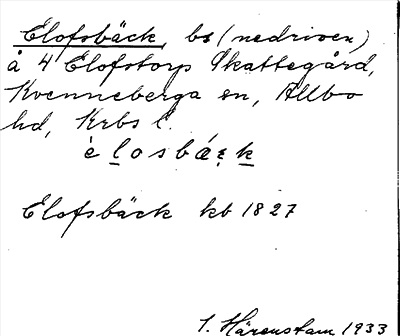 Elofsbäck, bs (nedriven)
å 4 Elofstorp Skattegård,
Kvenneberga sn, Allbo
hd, Krbs l.
èlosbák
Elofsbäck kb 1827
I. Härenstam 1933